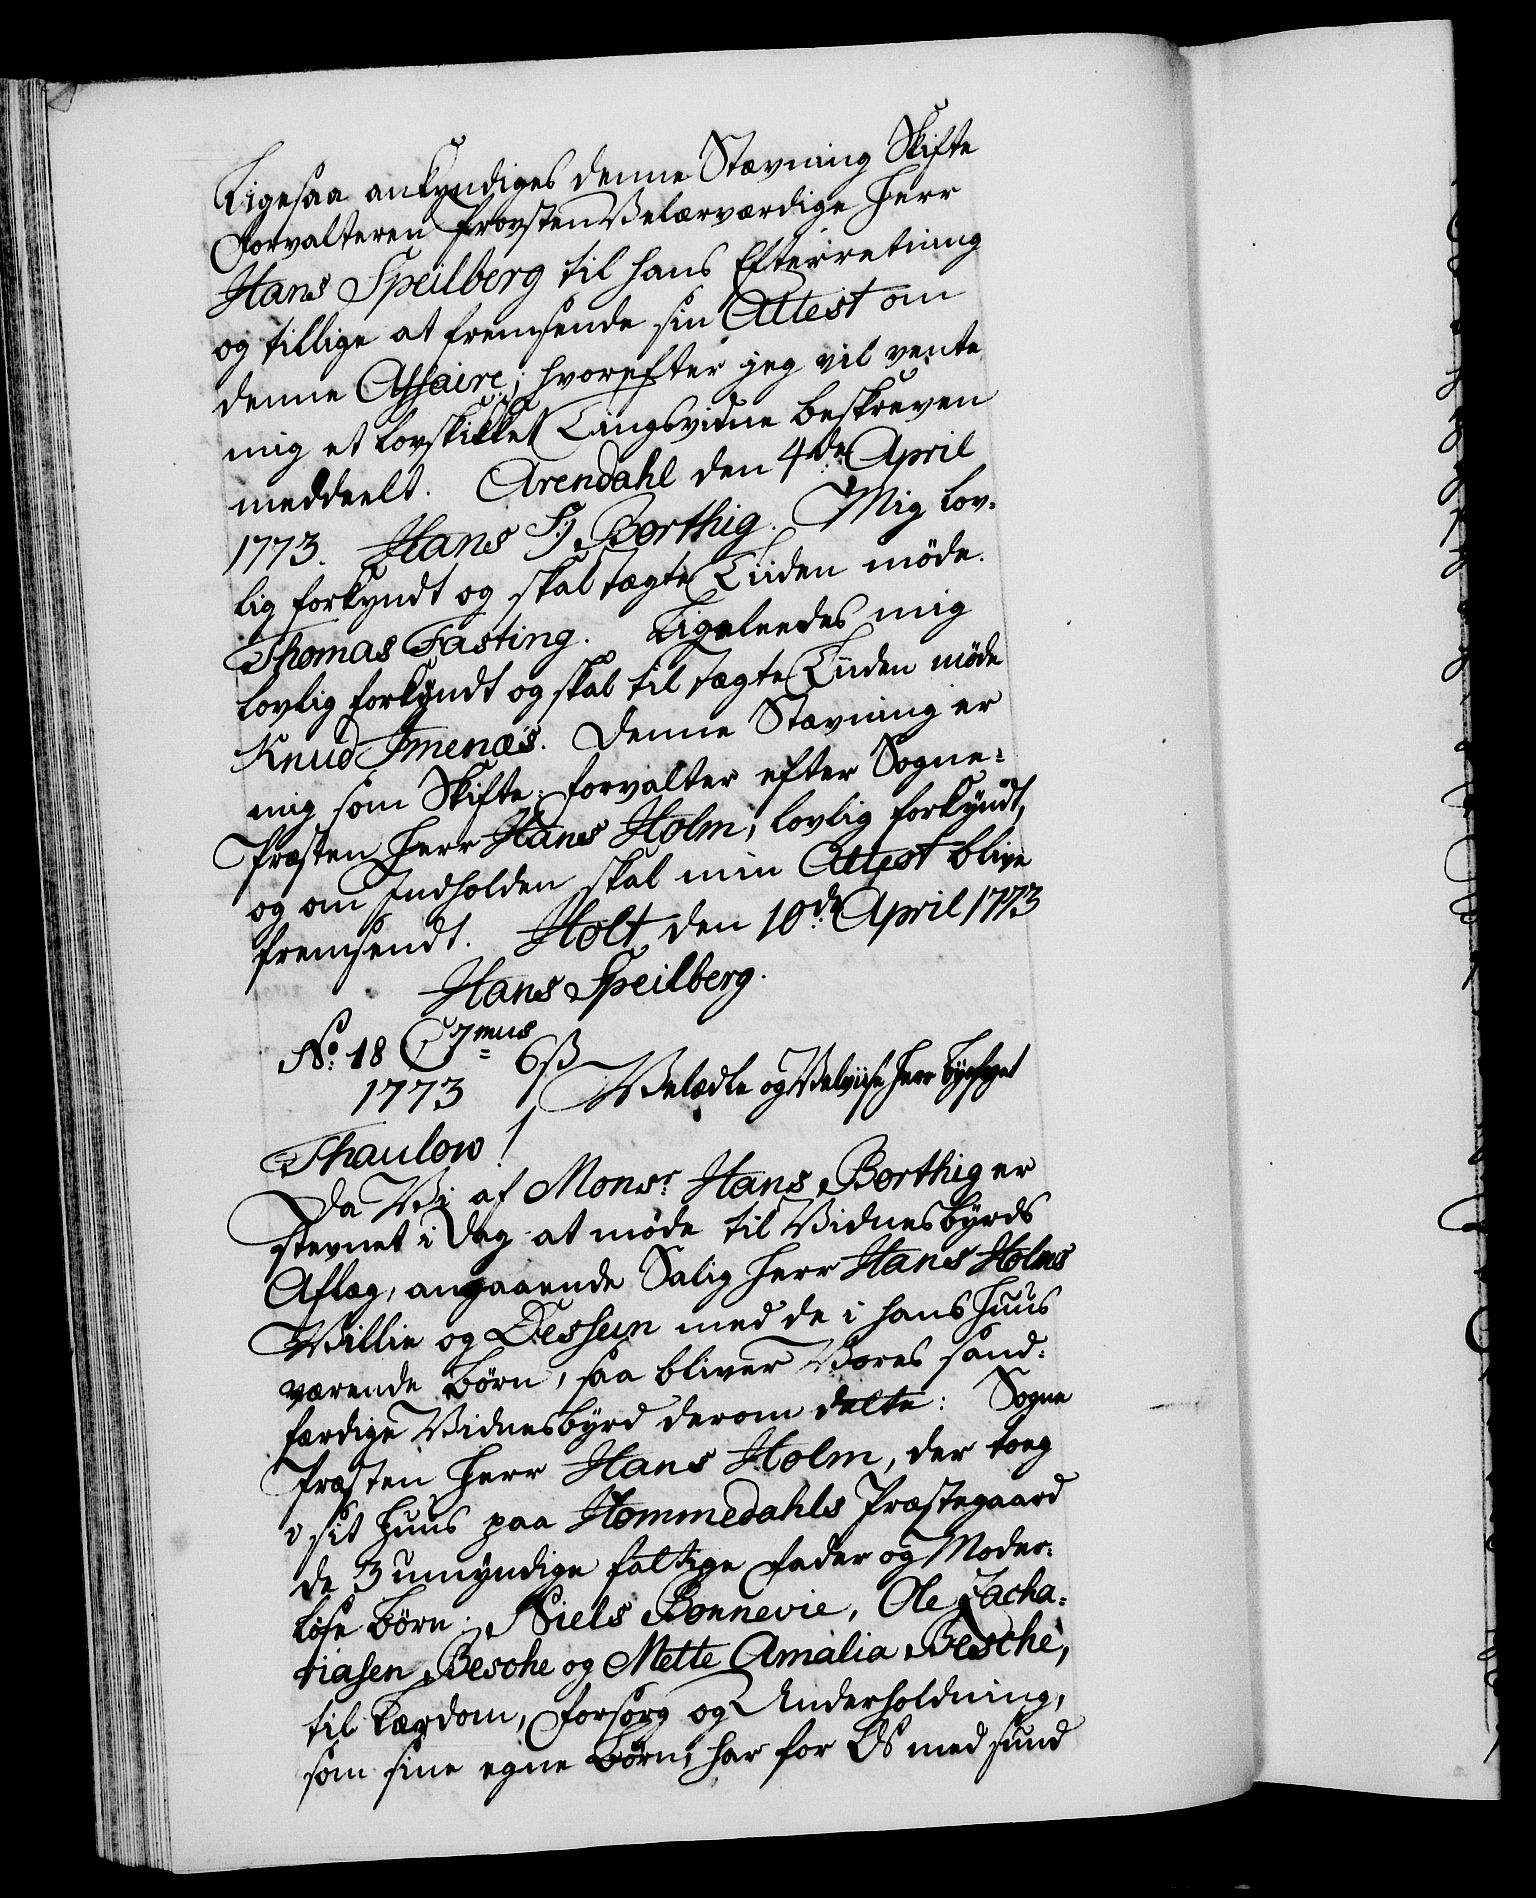 Ligesaa ankyndiges denne Stævning Skifte
Forvalteren Provsten Velærværdige Herr
Hans Speilberg til hans Efterretning
og tillige at fremsende sin Attest om
denne Affaire; hvorefter jeg vil vente
mig et lovskikket Tingsvidne beskreven
meddeelt. Arendahl den 4de April
1773. Hans Sj Borthig. Mig lov-
lig forkyndt og skal tægte Tiiden møde.
Thomas Fasting. Ligeleedes mig
lovlig forkyndt og skal til tægte Tiiden møde
Knud Imenæs. Denne Stævning er
mig som Skifte-forvalter efter Sogne-
Præsten Herr Hans Holm, lovlig forkyndt,
og om Indholden skal min Attest blive
fremsendt. Holt den 10de April 1773
Hans Speilberg.
No. 18 C 7mus 6 ß
1773 Velædle og Velviise Herr Byefoget
Thaulow!
Da Vi af Monsr Hans Borthig er
stevnet i Dag at møde til Vidnesbyrds
Aflæg, angaaende Salig Herr Hans Holms
Villie og Dessein med de i hans Huus
værende Børn, saa bliver Vores sand-
færdige Vidnesbyrd derom dette: Sogne
Præsten Herr Hans Holm, der toeg
i sit Huus paa Hommedahls Præstegaard
de 3 umyndige fattige Fader og Moder-
løse Børn: Niels Bonnevie, Ole Zacha-
riasen Besche og Mette Amalia Besche,
til Lærdom, Forsorg og Underholdning,
som sine egne Børn; har for Os med sund